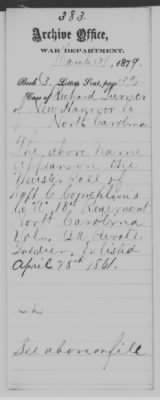 383.
Archive Office,
WAR DEPARTMENT.
March 21, 1879.
Book 3, Letters Sent, page
Case of Richard Turner
of New Hanover Co
North Carolina
The above name
appears on the
Muster Roll of
Capt C
Co "A" 18" Regiment
North Carolina
Vols. C.S.A. Private
Soldier. Enlisted
April 15th 1861.
See above on file